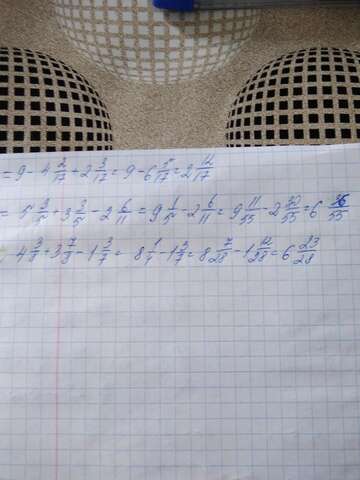 = 9 - 4 2/17 + 2 3/17 = 9 - 6 5/17 = 2 12/17
= 5 3/5 + 3 3/5 - 2 6/11 = 9 1/5 - 2 6/11 = 9 11/55 - 2 30/55 = 6 36/55
4 3/9 + 3 7/9 - 1 3/7 = 8 1/7 - 1 3/7 = 8 7/28 - 1 12/28 = 6 23/28